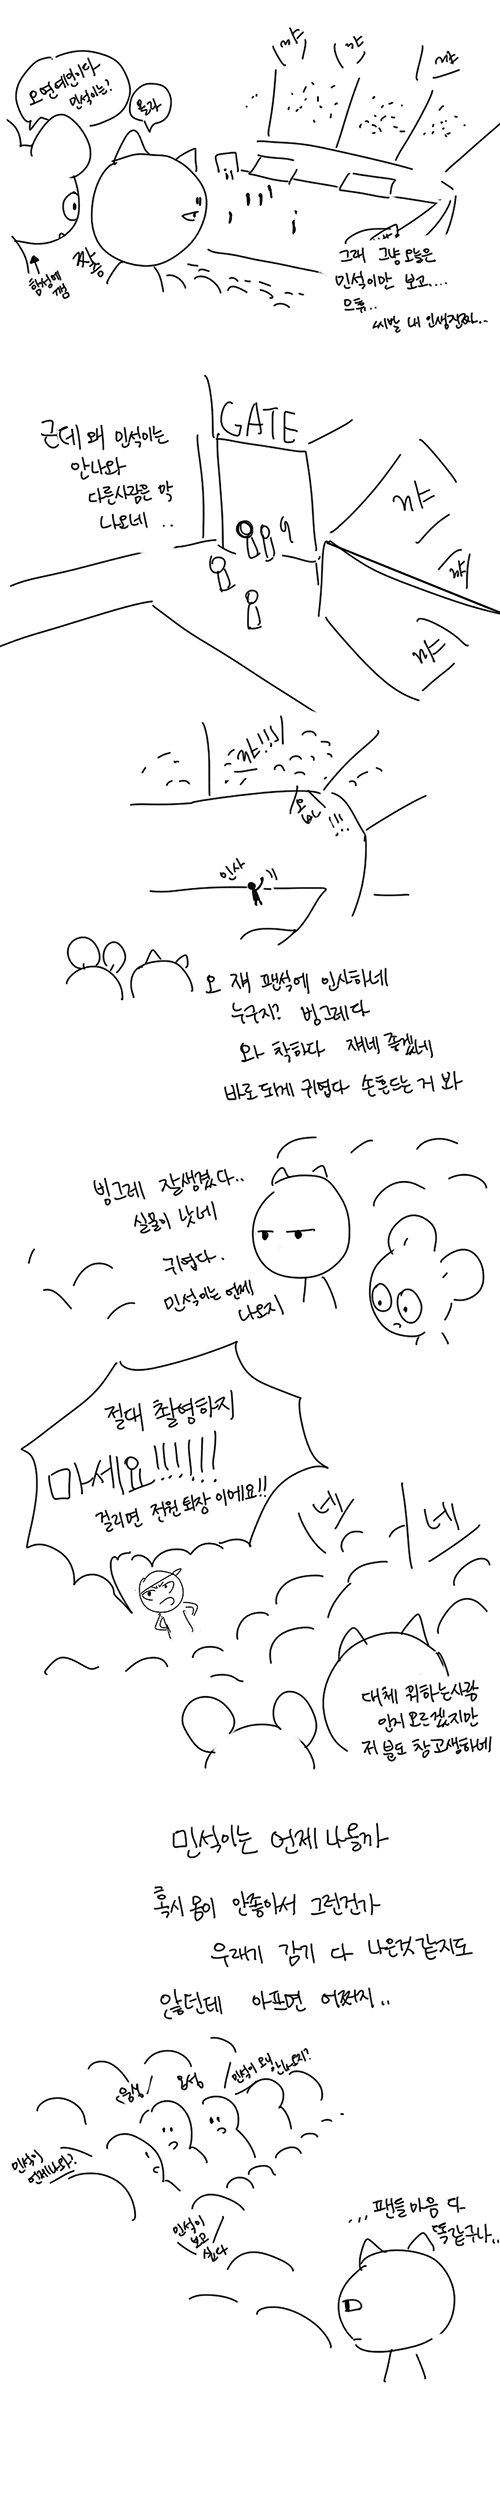 꺄
꺄
꺄
오 연예인이다
민석이는?
몰라
함성에
깸
짜증
그래 그냥 오늘은
민석이만 보고....
으휴..
씨발 내 인생진짜..
GATE
근데 왜 민석이는
안나와
다른사람은 막
나오네 ..
꺄
꺄
꺄
꺄!!!
오
!!!
인사
오 쟤 팬석에 인사하네
누구지? 빙그레다
와 착하다 쟤네 좋겠네
바로 뒤에 귀엽다 손흔드는 거 봐
빙그레 잘생겼다..
실물이 낫네
귀엽다.
민석이는 언제
나오지
절대 촬영하지
마세요!!!!!!!
걸리면 전원 퇴장 이에요!!
네
네
대체 뭐하는사람
인지 모르겠지만
저 분도 참고생하네
민석이는 언제 나올까
혹시 몸이 안좋아서 그런건가
우래기 감기 다 나은것 같지도
않던데 아프면 어쩌지..
웅성
웅성
민석이 언제
나와?
민석이
보고
싶다
... 팬들 마음 다
똑같구나..